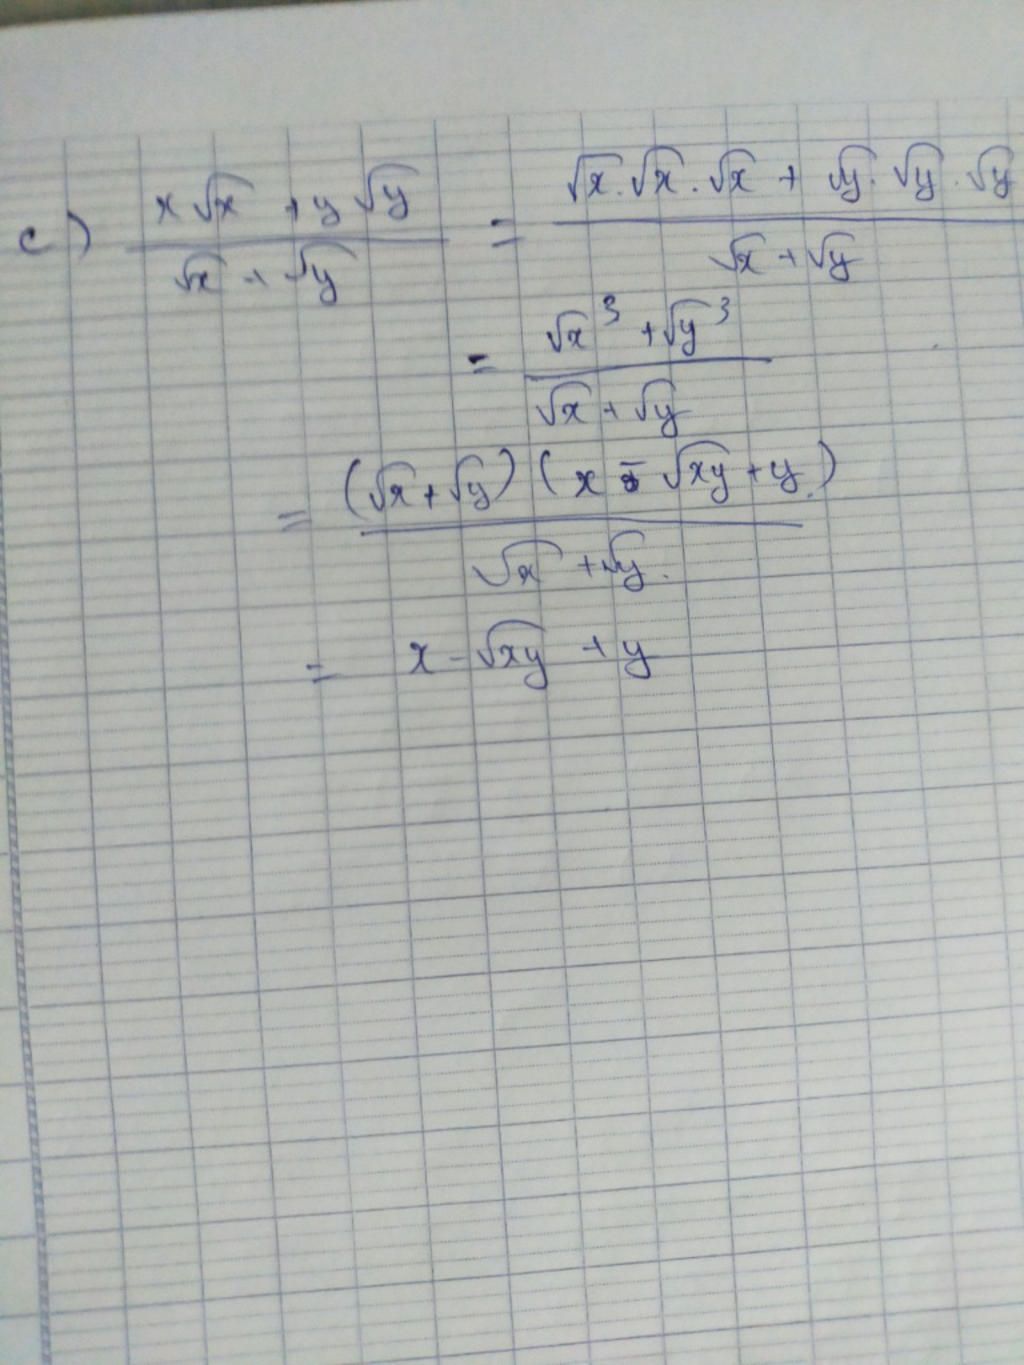 c) (x√x + y√y)/(√x + √y) = (√x.√x.√x + √y.√y.√y)/(√x + √y)
= (√x³ + √y³)/(√x + √y)
= ((√x + √y)(x - √xy + y))/(√x + √y)
= x - √xy + y